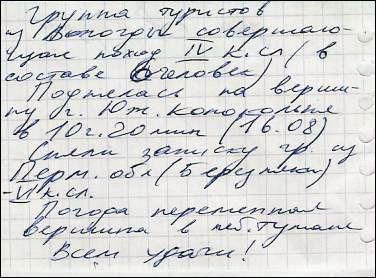 Группа туристов
из Вологды совершаю-
щая поход IV к.сл (в
составе 6 человек)
Поднялась на верши-
ну г. Юж. Колокольня
в 10г. 20 мин (16.08)
Сняли записку гр из
Перм. обл (Березники)
-VI к.сл.
Погода переменная
вершина в неб. тумане
Всем удачи!